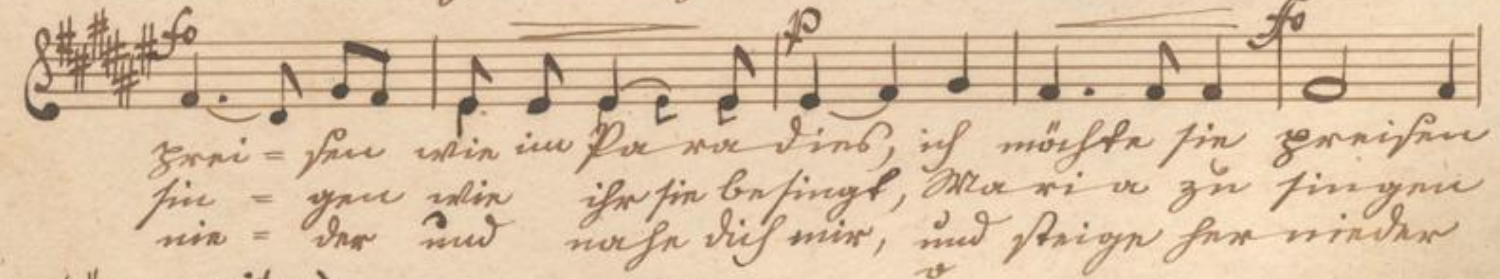 fo p fo
prei = sen wie im Pa ra dies, ich möchte sie preisen
sin = gen wie ihr sie besingt, Maria zu singen
nie = der und nahe dich mir, und steige her nieder